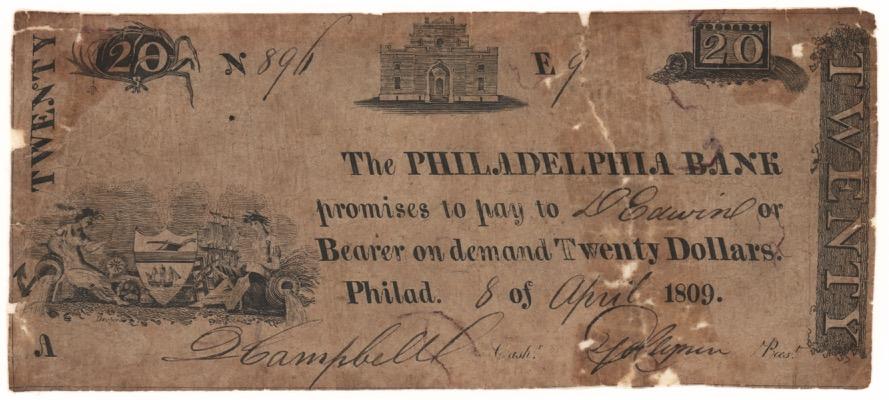 TWENTY
20
N 896
E 9
20
TWENTY
The PHILADELPHIA BANK
promises to pay to D Edwin or
Bearer on demand Twenty Dollars.
Philad. 8 of April 1809.
A
Campbell Cash.r Pres.t